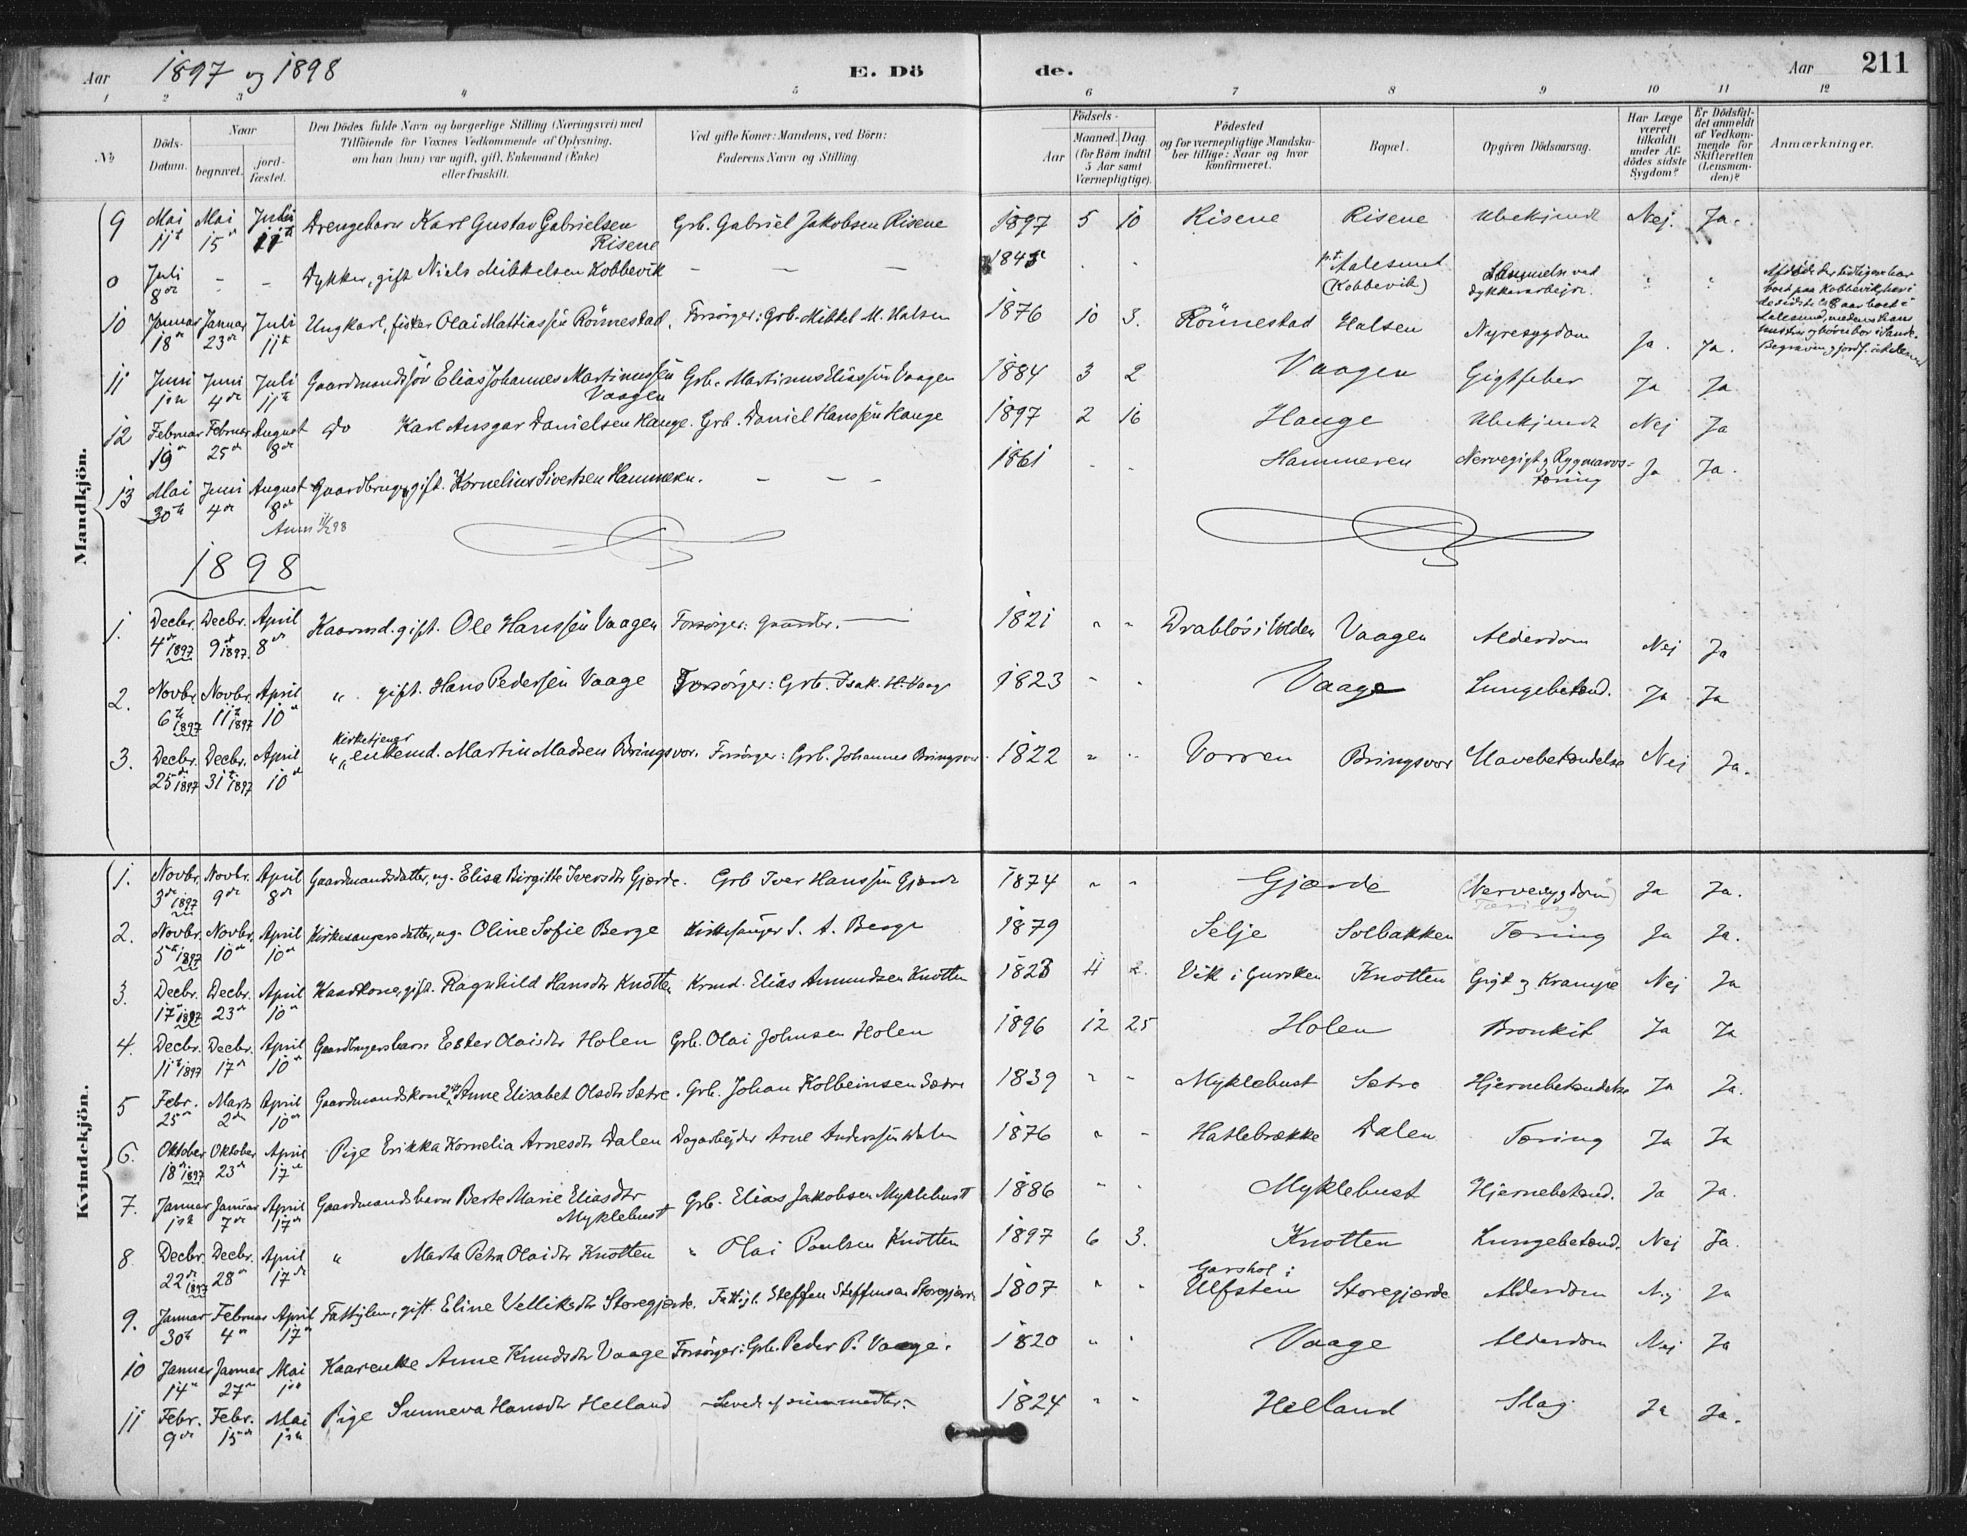 Aar 1897 og 1898 E. Dö de. Aar 211
1 2 3 4 5 6 7 8 9 10 11 12
No
Döds-Datum.
Naar begravet. jordfæstet.
Den Dödes fulde Navn og borgerlige Stilling (Næringsvei) med
Tilföiende for Voxnes Vedkommende af Oplysning,
om han (hun) var ugift, gift, Enkemand (Enke)
eller fraskilt.
Ved gifte Koner: Mandens, ved Börn:
Faderens Navn og Stilling.
Födsels-
Aar Maaned. Dag
(for Börn indtil 5 Aar samt Værnepligtige).
Födested
og for værnepligtige Mandskaber tillige: Naar og hvor konfirmeret.
Bopæl.
Opgiven Dödsaarsag.
Har Læge været tilkaldt under Afdödes sidste Sygdom?
Er Dödsfaldet anmeldt af Vedkommende for Skifteretten (Lensmanden)?
Anmærkninger.
Mandkjön.
9 Mai 11te Mai 15de Juli 11te Drengebarn Karl Gustav Gabrielsen Risene Grb. Gabriel Jakobsen Risene 1897 5 10 Risene Risene Ubekjendt Nej. Ja.
0 Juli 8de - - Dykker, gift Niels Mikkelsen Kobbevik - - - 1845 p.t. Aalesund (Kobbevik) ved dykkerarbejde. " "
10 Januar 18de Januar 23de Juli 11te Ungkarl, fisker Olai Mathiassen Rönnestad. Forsörger: Grb. Mikkel M. Halsen 1876 10 3. Rönnestad Halsen Nyresygdom Ja. Ja.
11 Juni 1ste Juni 4de Juli 11te Gaardmandssön Elias Johannes Martinussen Vaagen Grb. Martinus Eliassen Vaagen 1884 3 2 Vaagen Gigtfeber Ja Ja
12 Februar 19de Februar 25de August 8de Do Karl Ansgar Danielsen Hauge. Grb. Daniel Hanssen Hauge 1897 2 16 Hauge Ubekjendt Nej Ja
13 Mai 30te Juni 4de August 8de Gaardbruger, gift. Kornelius Sivertsen Hammeren. - - - 1861 - - Hammeren Nervegigt og Rygmarvstæring Ja Ja.
1898
1. Decbr. 4de 1897 Decbr. 9de 1897. April 8de Kaarmd. gift. Ole Hanssen Vaagen Forsörger: 1821 " " Drablös i Volden Vaagen Alderdom Nej Ja
2. Novbr. 6te 1897 Novbr. 11te 1897 April 10de " gift. Hans Pedersen Vaage Forsörger: Grb. Isak H. Vaage 1823 " " Vaage Lungebetænd. Ja Ja
3. Decbr. 25de 1897 Decbr. 31te 1897 April 10de " Kirketjener enkemd. Martin Madsen Bringsvor. Forsörger: Grb. Johannes Bringsvor 1822 " " Vorren Bringsvor Mavebetændelse Nej Ja.
Kvindekjön.
1. Novbr. 3de 1897 Novbr. 9de April 8de Gaardmandsdatter, ug. Elisa Birgitte Iversdtr Gjærde. Grb Iver Hanssen Gjærde 1874 " " Gjærde (Nervesygdom) Tæring Ja Ja.
2. Novbr. 5te 1897 Novbr. 10de April 10de Kirkesangersdatter, ug. Oline Sofie Berge Kirkesanger S. A. Berge 1879 Selje Solbakken Tæring Ja Ja.
3. Decbr. 17de 1897 Decbr. 23de April 10de Kaarkone, gift. Ragnhild Hansdtr Knotten Krmd. Elias Amundsen Knotten 1823 4 2. Vik i Gursken Knotten Gigt og Krampe Nej Ja
4. Decbr. 11te 1897 Decbr. 17de April 10de Gaardbrugersbarn Ester Olaisdtr Holen Grb. Olai Johnsen Holen 1896 12 25 Holen Bronkit Ja Ja
5 Febr. 25de Marts 2den April 10de Gaardmandskone Anne Elisabet Olsdtr Sætre. Grb. Johan Kolbeinsen Sætre 1839 " - Myklebust Sætre Hjernebetændelse Ja Ja.
6. Oktober 18de 1897 Oktober 23de April 17de Pige Erikka Kornelia Arnesdtr Dalen Dagarbejder Arne Anderssen Dalen 1876 " - Hatlebrække Dalen Tæring Ja Ja
7. Januar 1ste Januar 7de April 17de Gaardmandsbarn Berte Marie Eliasdtr Myklebust Grb. Elias Jakobsen Myklebust 1886 " " Myklebust Hjernebetænd. Ja Ja.
8. Decbr. 22de 1897 Decbr. 28de April 17de " Marta Petra Olaidtr Knotten " Olai Poulsen Knotten 1897 6 3. Knotten Lungebetænd. Nej Ja.
9. Januar 30te Februar 4de April 17de Fattiglem, gift. Eline Velliksdtr Storegjærde. Fattigl. Steffen Steffensen Storegjærde 1807 " " Garshol i Ulfsten Storegjærde Alderdom Nej Ja
10 Januar 14de Januar 27de Mai 1ste Kaarenke Anne Knudsdtr Vaage Forsörger: Grb. Peder P. Vaage. 1820 " " Vaage Alderdom Nej Ja
11 Febr. 9de Febr. 15de Mai 1ste Pige Sunneva Hansdtr Helland - Levede af sine midler. - 1824 " " Helland Slag Ja Ja.